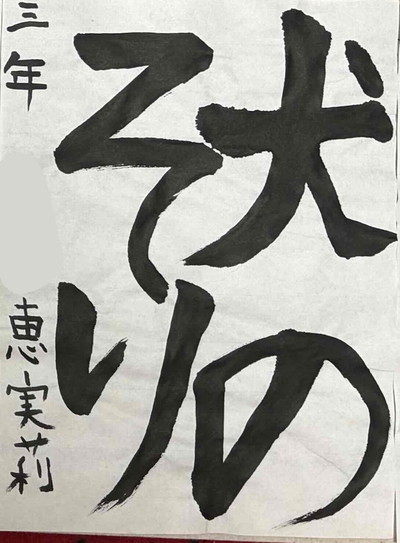 犬の
そり
三年
恵実莉